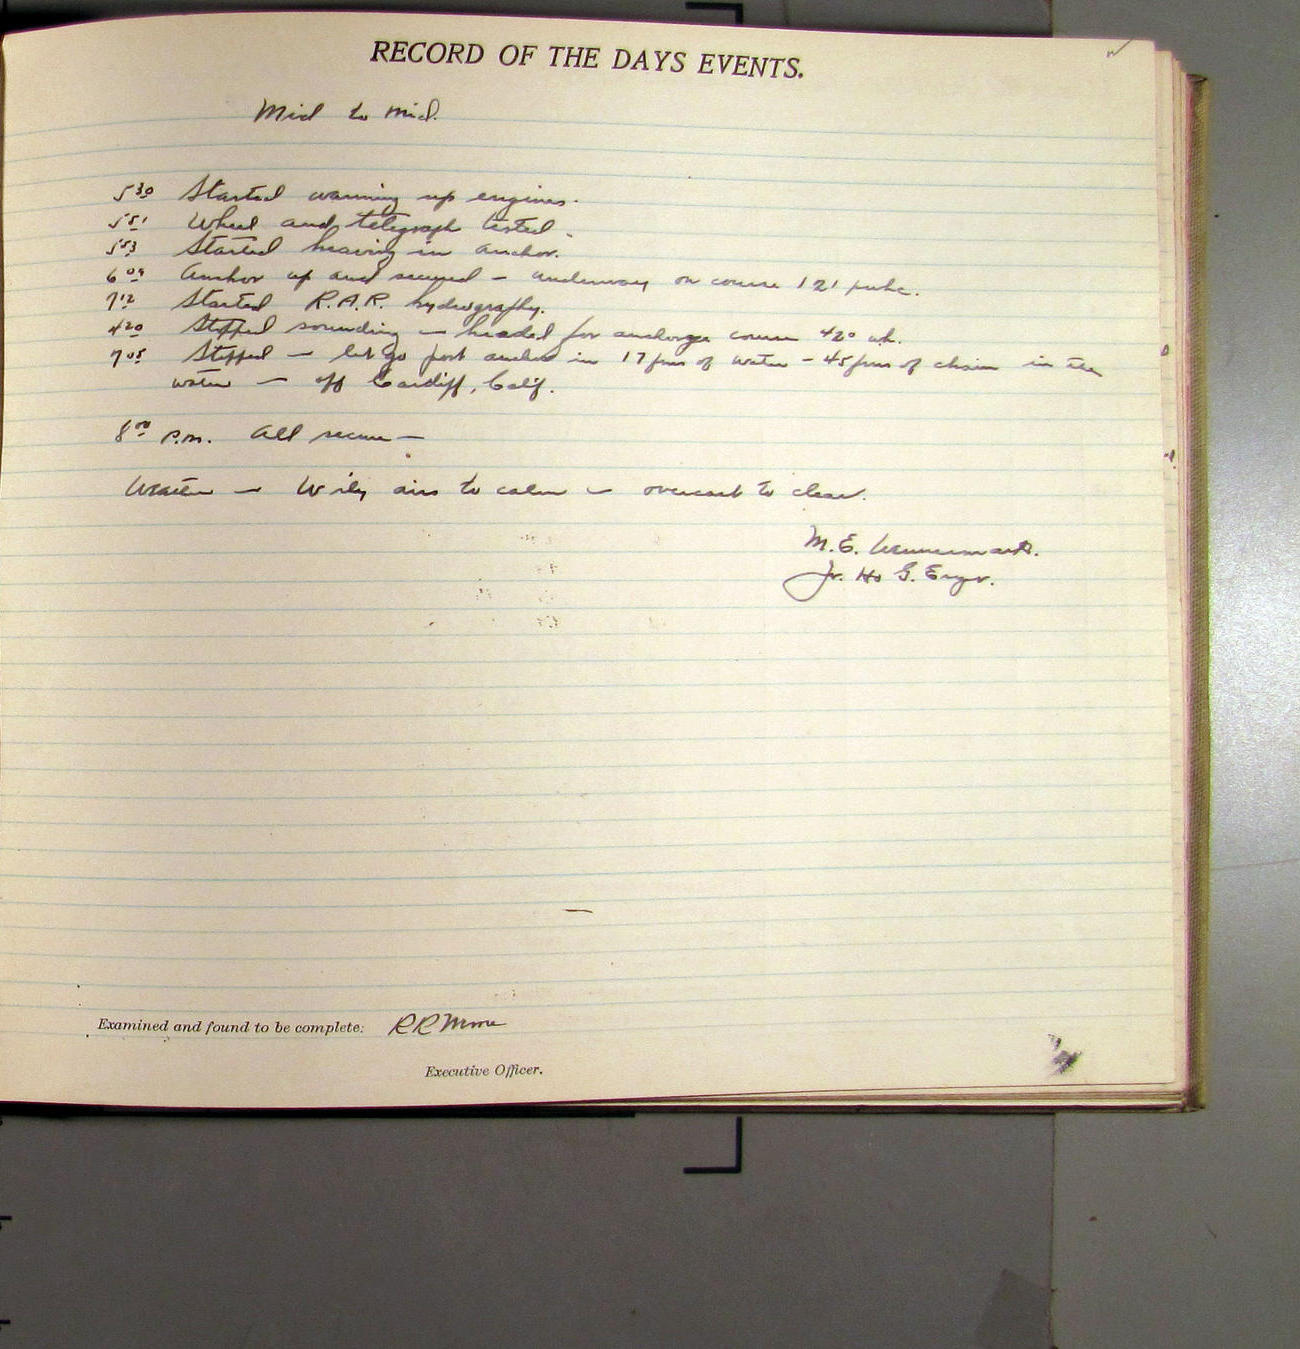 RECORD OF THE DAYS EVENTS.
Mid to Mid.
5 30 Started warming up engines.
5 51 Wheel and telegraph tested.
5 53 Started heaving in anchor.
6 09 Anchor up and secured - underway on course 121
7 12 Started R.A.R. hydrography.
4 20 Stopped sounding - headed for anchorage course 42°
7 05 Stopped - let go port anchor in 17 fms of water - 45 fms of chain in the
water - off Cardiff, Calif.
8 00 P.M. All secure -
Weather - W'ly airs to calm - overcast to clear.
M. E.
Jr. H. & G. Engr.
Examined and found to be complete: R R Moore
Executive Officer.